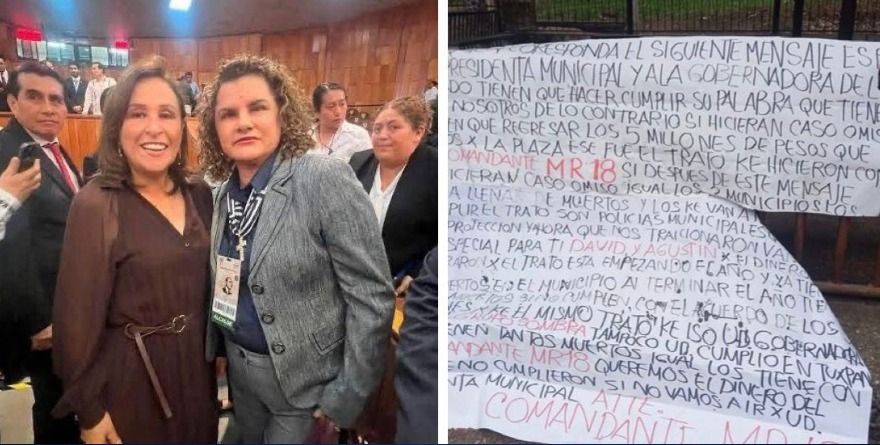 ALCALDE
ORESPONDA EL SIGUIENTE MENSAJE ES P
RESIDENTA MUNICIPAL Y A LA GOBERNADORA DEL
DO TIENEN QUE HACER CUMPLIR SU PALABRA QUE TIENE
NOSOTROS DE LO CONTRARIO SI HICIERAN CASO OMIS
EN QUE REGRESAR LOS 5 MILLONES DE PESOS QUE
X LA PLAZA ESE FUE EL TRATO KE HICIERON CO
COMANDANTE MR 18 SI DESPUES DE ESTE MENSAJE
ICIERAN CASO OMISO IGUAL LOS 3 MUNICIPIOS LOS
A LLENAR DE MUERTOS Y LOS KE VAN A
PLIR EL TRATO SON POLICIAS MUNICIPALES
PROTECCION Y AHORA QUE NOS TRAICIONARON VA
SPECIAL PARA TI DAVID Y AGUSTIN X EL DINER
RARON X EL TRATO ESTA EMPEZANDO EL AÑO Y YA TIE
EN EL MUNICIPIO AL TERMINAR EL AÑO TE
SI NO CUMPLEN, CON EL ACUERDO DE LOS
EL MISMO TRATO KE ISO UD. GOBERNADOR
BOMBA TAMPOCO UD CUMPLIO EN TUXPAN
ENEN TANTOS MUERTOS IGUAL LOS TIENE CON
MANDANTE MR18 QUEREMOS EL DINERO DEL
E NO CUMPLIERON SI NO VAMOS A IR X UD.
NTA MUNICIPAL ATTE.
COMANDANTE M